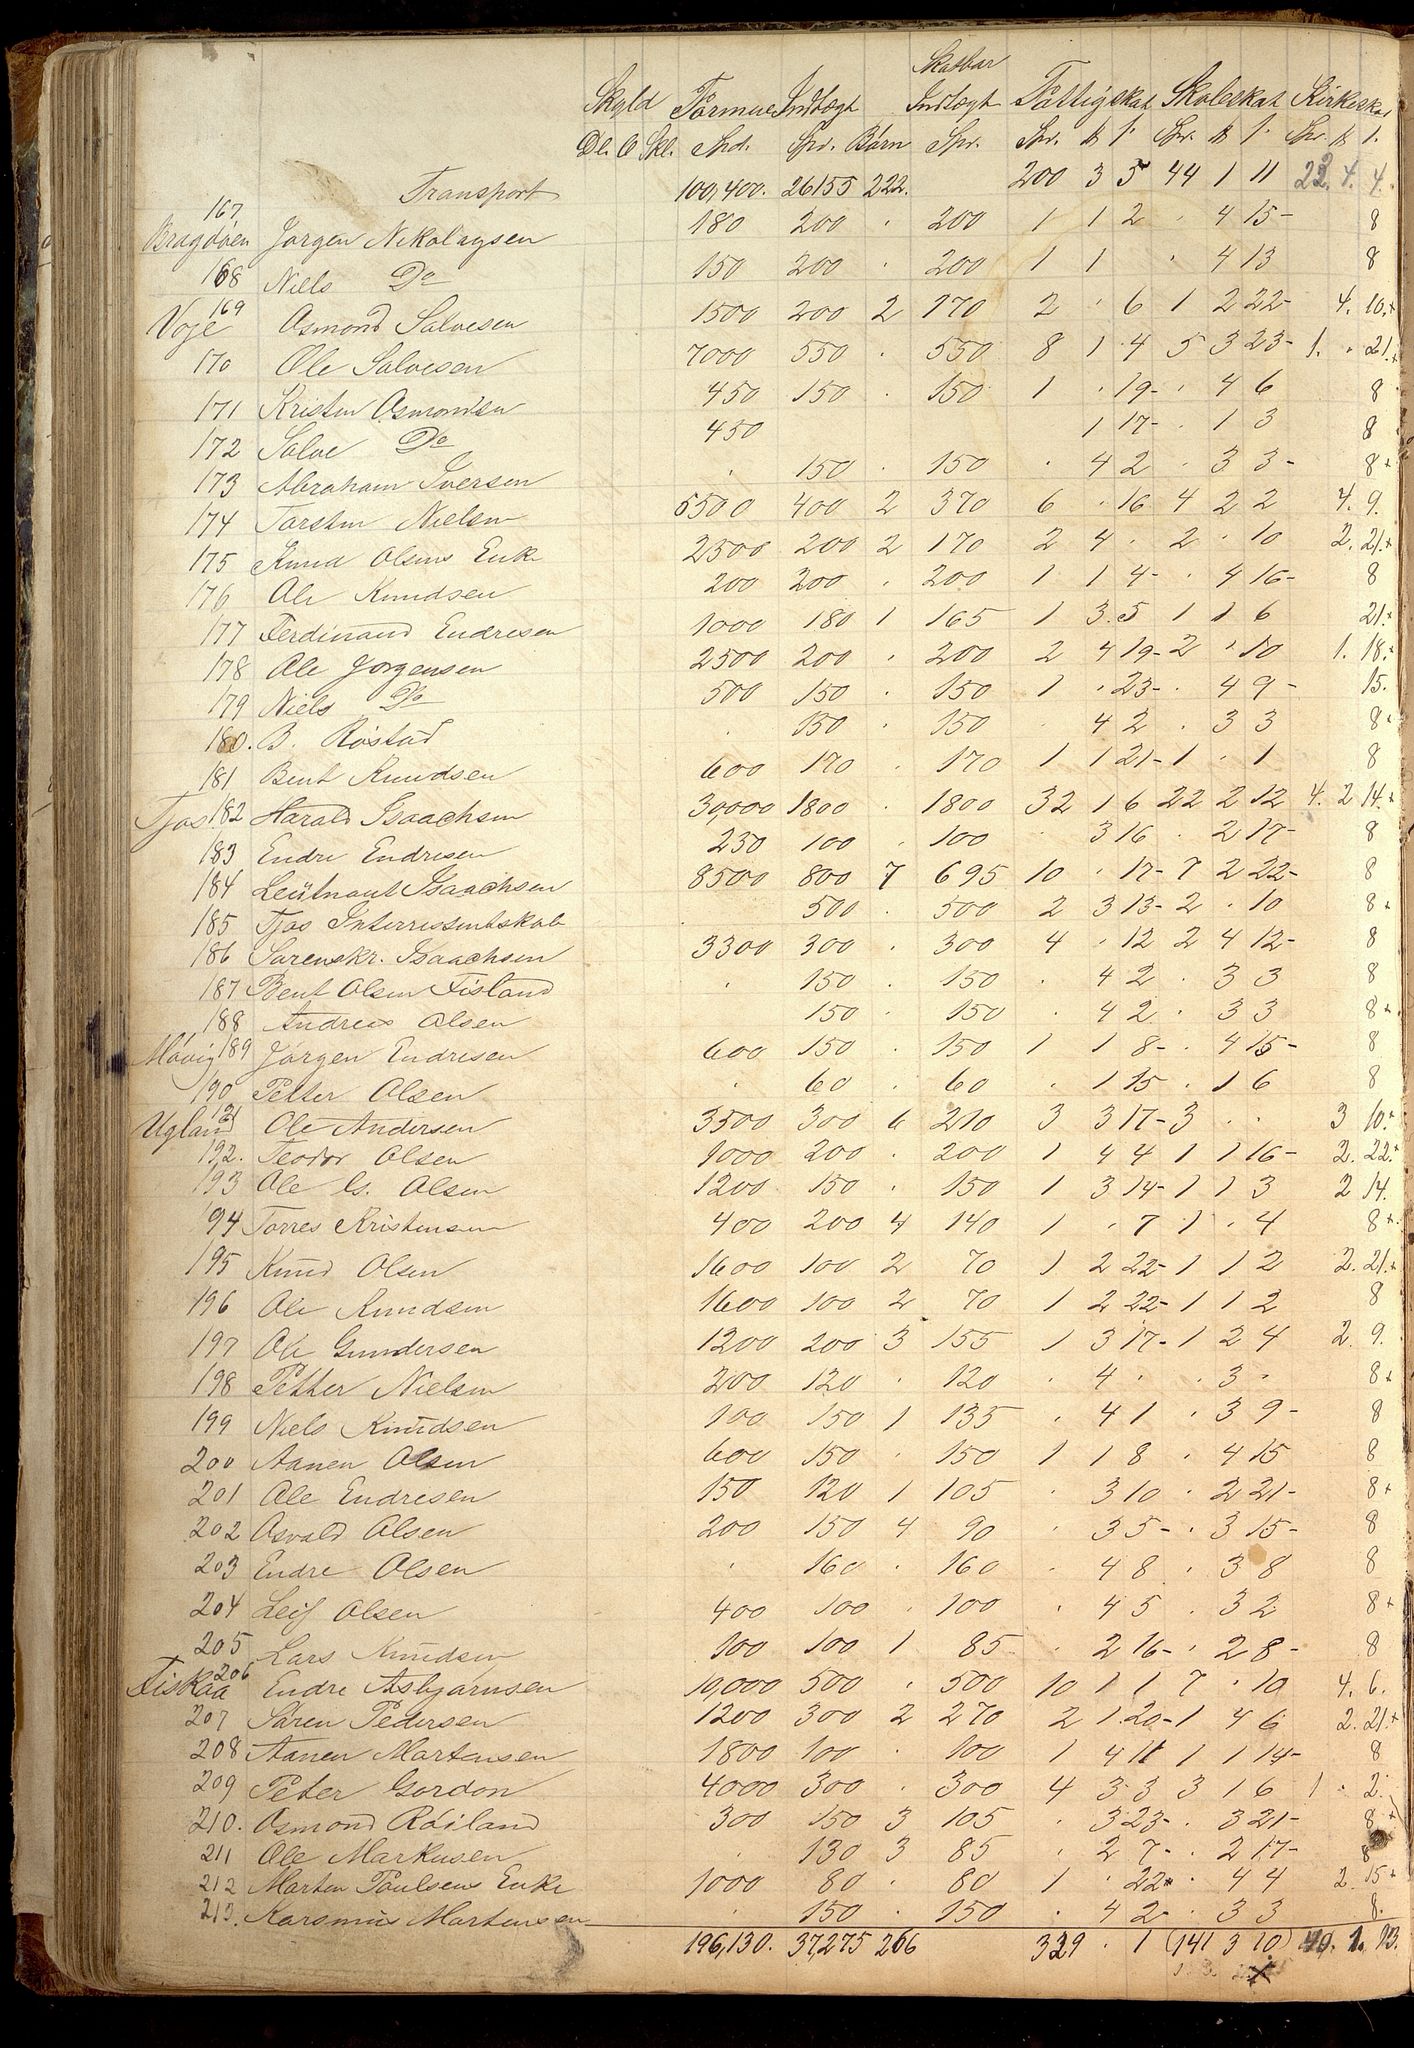 Skatbar
Skyld Formue Indtægt Indtægt Fattigskat Skoleskat Kirkeskat
Dl. O Skl. Spd. Spr. Børn Spr. Spr. ß Spr. ß Spr. ß
Transport 100,400. 26155 222. 200 3 5 44 1 11 22. 4. 4.
167 Bragdøen Jørgen Nikolaysen 180 200 · 200 1 1 2 · 4 15- 8
168 Niels Do 150 200 · 200 1 1 · 4 13 8
Voje 169 Osmond Salvesen 1500 200 2 170 2 · 6 1 2 22- 4. 10.+
170 Ole Salvesen 7000 550 · 550 8 1 4 5 3 23- 1. · 21.+
171 Kristen Osmondsen 450 150 · 150 1 · 19- · 4 6 8
172 Salve Do 450 1 17- · 1 3 8
173 Abraham Iversen · 150 · 150 · 4 2 · 3 3- 8+
174 Torsten Nielsen 5500 400 2 370 6 · 16 4 2 2 4. 9.
175 Knud Olsens Enke 2500 200 2 170 2 4 · 2 · 10 2. 21.+
176 Ole Knudsen 200 200 · 200 1 1 4- · 4 16- 8
177 Ferdinand Endresen 1000 180 1 165 1 3. 5 1 1 6 21.+
178 Ole Jørgensen 2500 200 · 200 2 4 19- 2 · 10 1. 18.+
179 Niels Do 500 150 · 150 1 · 23- · 4 9- 15.
180. B. Røstad · 150 · 150 · 4 2 · 3 3 8+
181 Bent Knudsen 600 170 · 170 1 1 21- 1 · 1 8
Tjos 182 Harald Isaachsen 30,000 1800 · 1800 32 1 6 22 2 12 4. 2 14.+
183 Endre Endresen 250 100 · 100 · 3 16 · 2 17- 8
184 Leütnant Isaachsen 8500 800 7 695 10 · 17- 7 2 22- 8
185 Tjos Interressentskab 500 · 500 2 3 13- 2 · 10 8+
186 Sørenskr. Isaachsen 3300 300 · 300 4 · 12 2 4 12- 8
187 Bent Olsen Fisland · 150 · 150 · 4 2 · 3 3 8
188 Andreas Olsen 150 · 150 · 4 2 · 3 3 8+
Møvig 189 Jørgen Endresen 600 150 · 150 1 1 8- · 4 15- 8
190 Petter Olsen · 60 · 60 · 1 15 · 1 6 8
Ugland 191 Ole Andersen 3500 300 6 210 3 3 17- 3 · · 3 10.+
192. Teodor Olsen 1000 200 · 200 1 4 4 1 1 16- 2. 22.+
193 Ole G. Olsen 1200 150 · 150 1 3 14- 1 1 3 2 14.
194 Torres Kristensen 400 200 4 140 1 · 7 1 · 4 8+
195 Knud Olsen 1600 100 2 70 1 2 22- 1 1 2 2. 21.+
196 Ole Knudsen 1600 100 2 70 1 2 22- 1 1 2 8
197 Ole Gundersen 1200 200 3 155 1 3 17- 1 2 4 2. 9.
198 Petter Nielsen 200 120 · 120 · 4 · · 3 · 8+
199 Niels Knudsen 100 150 1 135 · 4 1 · 3 9- 8
200 Aanen Olsen 600 150 · 150 1 1 8 · 4 15 8
201 Ole Endresen 150 120 1 105 · 3 10 · 2 21- 8+
202 Osvald Olsen 200 150 4 90 · 3 5- · 3 15- 8
203 Endre Olsen · 160 · 160 · 4 8 · 3 8 8
204 Leif Olsen 400 100 · 100 · 4 5 · 3 2 8+
205 Lars Knudsen 100 100 1 85 · 2 16- · 2 8- 8
Fiskaa 206 Endre Asbjørnsen 10,000 500 · 500 10 1 1 7 · 10 4. 6.
207 Søren Pedersen 1200 300 2 270 2 1. 20- 1 4 6 2. 21.+
208 Aanen Mortensen 1800 100 · 100 1 4 11 1 1 14- 8
209 Peter Gordon 4000 300 · 300 4 3 3 3 1 6 1 · 2.
210. Osmond Røiland 300 150 3 105 · 3 23- · 3 21- 8+
211 Ole Markusen · 130 3 85 · 2 7- · 2 17- 8
212 Morten Poulsens Enke 1000 80 · 80 1 · 22- · 4 4 2. 15+
213. Rasmus Mortensen · 150 · 150 · 4 2- · 3 3 8.
196,130. 37,275 266 329 · 1 (141 3 10) 40. 1. 13.